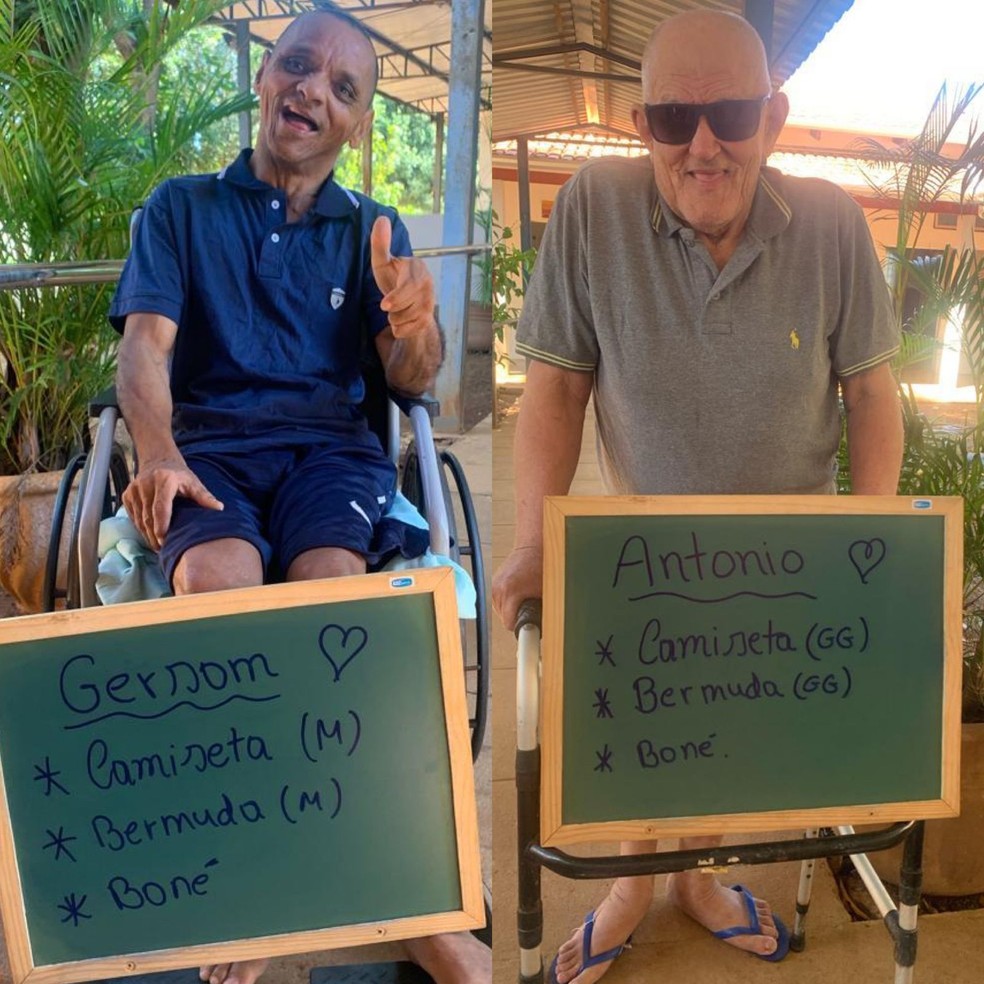 Gersom
* Camiseta (M)
* Bermuda (M)
* Boné
Antonio
* Camiseta (GG)
* Bermuda (GG)
* Boné.